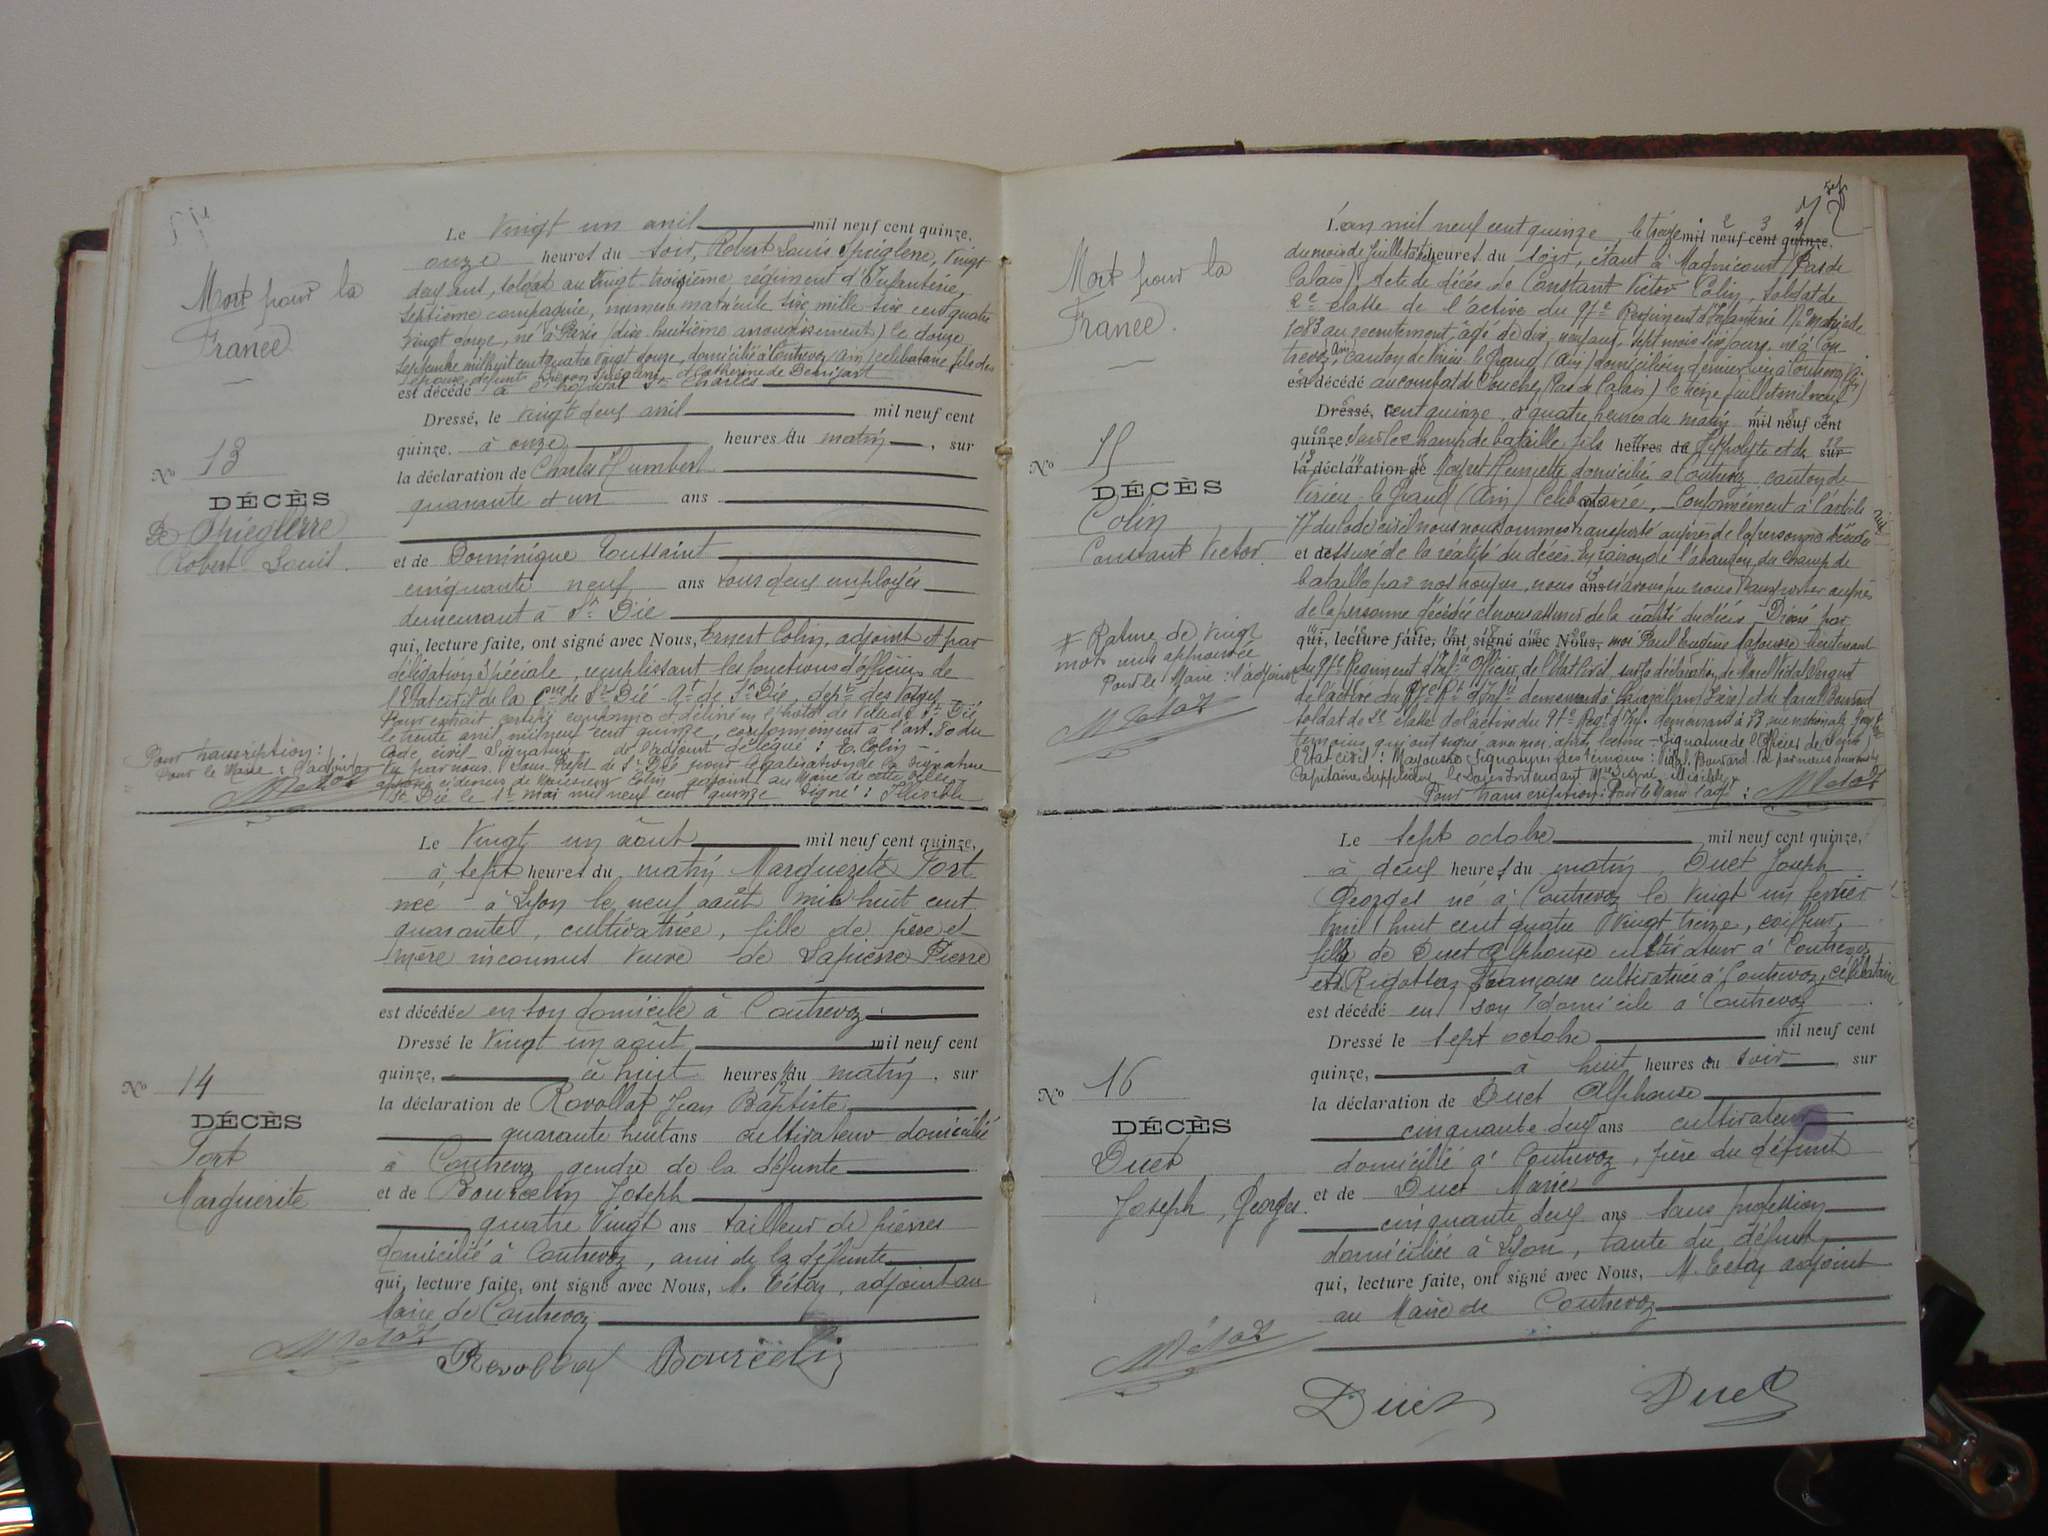 Mort pour la
France
Nº 13
DÉCÈS
Robert Louis
Pour transcription :
Pour le Maire : l'adjoint
Le Vingt un avril mil neuf cent quinze,
onze heures du soir, Robert Louis Spieglerre, vingt
deux ans, soldat au vingt troisième régiment d'Infanterie,
septième compagnie, numéro matricule six mille six cent quatre
vingt douze, né à Paris (dix huitième arrondissement) le douze
septembre mil huit cent quatre vingt douze, domicilié à Contrevoz (Ain) célibataire, fils des
est décédé à l'hôpital St Charles
Dressé, le vingt deux avril mil neuf cent
quinze, à onze heures du matin, sur
la déclaration de Charles Humbert
quarante et un ans
et de Dominique Toussaint
cinquante neuf ans tous deux employés
demeurant à St Dié
qui, lecture faite, ont signé avec Nous, Ernest Colin, adjoint et par
délégation spéciale, remplissant les fonctions d'officier de
l'Etat civil de la Cne de St Dié At de St Dié, dept des Vosges
le trente avril mil neuf cent quinze, conformément à l'art. 80 du
Code civil. Signature de l'adjoint délégué : E. Colin
Vu par nous. Sous-Préfet de St Dié pour légalisation de la signature
apposée ci-dessus de Monsieur Colin adjoint au Maire de cette ville
St Dié le 1er mai mil neuf cent quinze Signé : Illisible
Nº 14
DÉCÈS
Fort
Marguerite
Le Vingt un août mil neuf cent quinze,
à sept heures du matin Marguerite Fort
née à Lyon le neuf août mil huit cent
quarante, cultivatrice, fille de père et
mère inconnus veuve de Lapierre Pierre
est décédée en son domicile à Contrevoz
Dressé le Vingt un août mil neuf cent
quinze, à huit heures du matin, sur
la déclaration de Revollat Jean Baptiste
quarante huit ans cultivateur domicilié
à Contrevoz gendre de la défunte
et de Bourcelin Joseph
quatre Vingt ans tailleur de pierres
domicilié à Contrevoz, ami de la défunte
qui, lecture faite, ont signé avec Nous, M. Tétaz, adjoint au
Maire de Contrevoz
Revollat Bourcelin
Mort pour la
France.
Nº 15
DÉCÈS
Colin
Constant Victor
Rature de vingt
mots nuls approuvée
Pour le Maire : l'adjoint
L'an mil neuf cent quinze, le treize mil neuf cent quinze,
du mois de Juillet heures du soir, étant à Magnicourt (Pas de
Calais). Acte de décès de Constant Victor Colin, Soldat de
2e classe de l'active du 97e Régiment d'Infanterie Nº Matricule
1083 au recrutement, âgé de dix neuf ans, sept mois six jours né à Con
trevoz, canton de Virieu le Grand (Ain) domicilié en dernier lieu à Contrevoz (Ain)
est décédé au combat de Souchez (Pas de Calais) le treize juillet mil neuf
Dressé, cent quinze, à quatre heures du matin mil neuf cent
quinze sur le champ de bataille fils heures du Hippolyte et de sur
la déclaration de Henriette domicilié à Contrevoz canton de
Virieu-le-Grand (Ain) Célibataire, Conformément à l'article
77 du Code civil nous nous sommes transporté auprès de la personne décédée
et de assuré de la réalité du décès. En raison de l'abandon du champ de
bataille par nos troupes, nous ans n'avons pu nous transporter auprès
de la personne décédée et nous assurer de la réalité du décès. Dressé par
qui, lecture faite, ont signé avec Nous, moi Paul Eugène lieutenant
au 97e Régiment d'Infie Officier de l'Etat Civil, sur la déclaration de Marcel Vidal Sergent
soldat de 2e classe de l'active du 97e Régt d'Inf. demeurant à 83 rue nationale
témoins qui ont signé avec moi après lecture - Signature de l'Officier de
Pour transcription : Pour le Maire l'adjt :
Nº 16
DÉCÈS
Duet
Joseph, Georges.
Le sept octobre mil neuf cent quinze,
à deux heures du matin, Duet Joseph
Georges né à Contrevoz le vingt un février
mil huit cent quatre vingt treize, coiffeur,
fils de Duet Alphonse cultivateur à Contrevoz
et Françoise cultivatrice à Contrevoz, célibataire
est décédé en son domicile à Contrevoz
Dressé le sept octobre mil neuf cent
quinze, à huit heures du soir, sur
la déclaration de Duet Alphonse
cinquante deux ans cultivateur
domicilié à Contrevoz, père du défunt
et de Duet Marie
cinquante deux ans sans profession
domiciliée à Lyon, tante du défunt
qui, lecture faite, ont signé avec Nous, M. Tétaz adjoint
au Maire de Contrevoz
Duet Duet